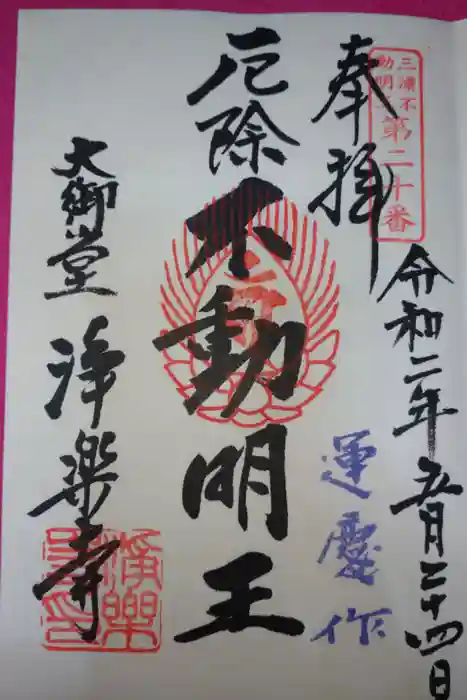 奉拝
三浦不
動明王
第二十番
令和二年五月二十四日
厄除
不動明王
運慶作
大御堂
浄楽寺